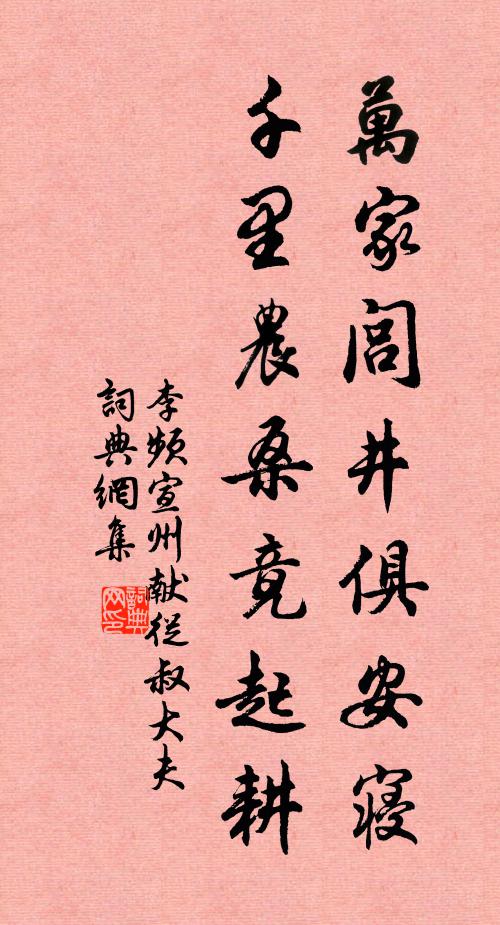 萬家閭井俱安寢
千里農桑竟起耕
李頻宣州献從叔大夫
詞典網集
詞典网印